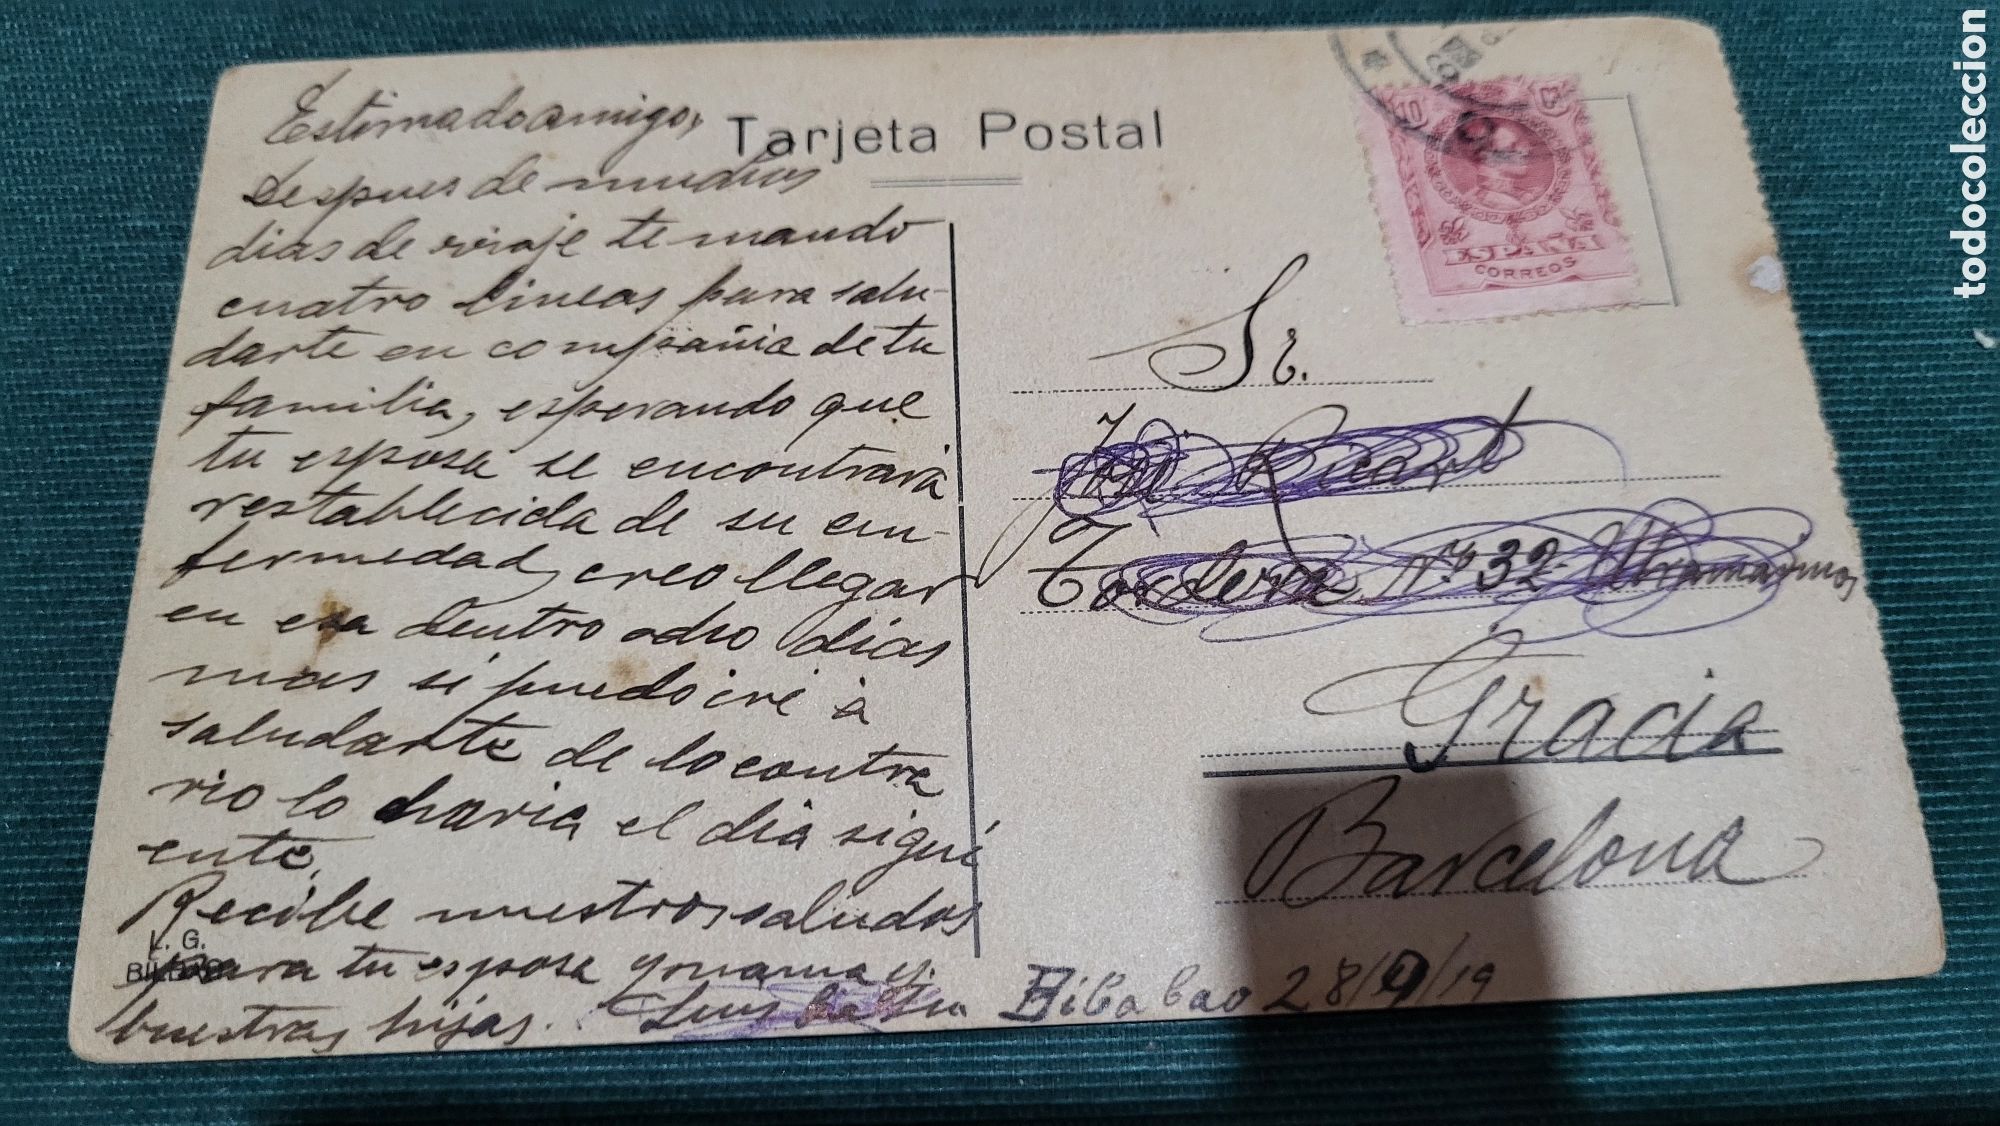 Tarjeta Postal
Estimado amigo,
Despues de muchos
dias de viaje te mando
cuatro lineas para salu-
darte en compañia de tu
familia, esperando que
tu esposa se encontrará
restablecida de su en-
fermedad, creo llegar
en esa dentro ocho dias
mas si puedo iré à
saludarte de lo contra
rio lo haria el dia sigui
ente.
Recibe nuestros saludos
para tu esposa y mama y
buestras hijas. Luis
L. G.
BILBAO
10
ESPAÑA
CORREOS
Sr.
José Ricart
Tordera nº 32 Ultramarinos
Gracia
Barcelona
Bilbabao 28/9/19
todocoleccion